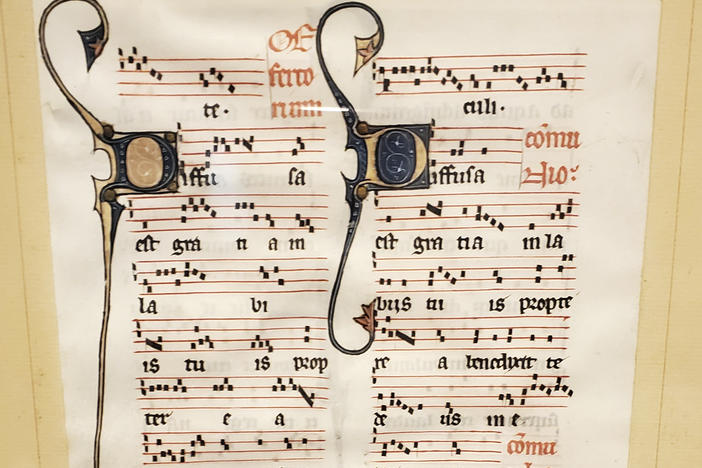 OF
ferto
te. rium
Diffu sa
est gra ti a in
la bi
is tu is prop
ter e a
culi.
cōmu
Diffusa nio.
est gra tia in la
bijs tu is propte
re a benedixit te
de us in e
cōmu